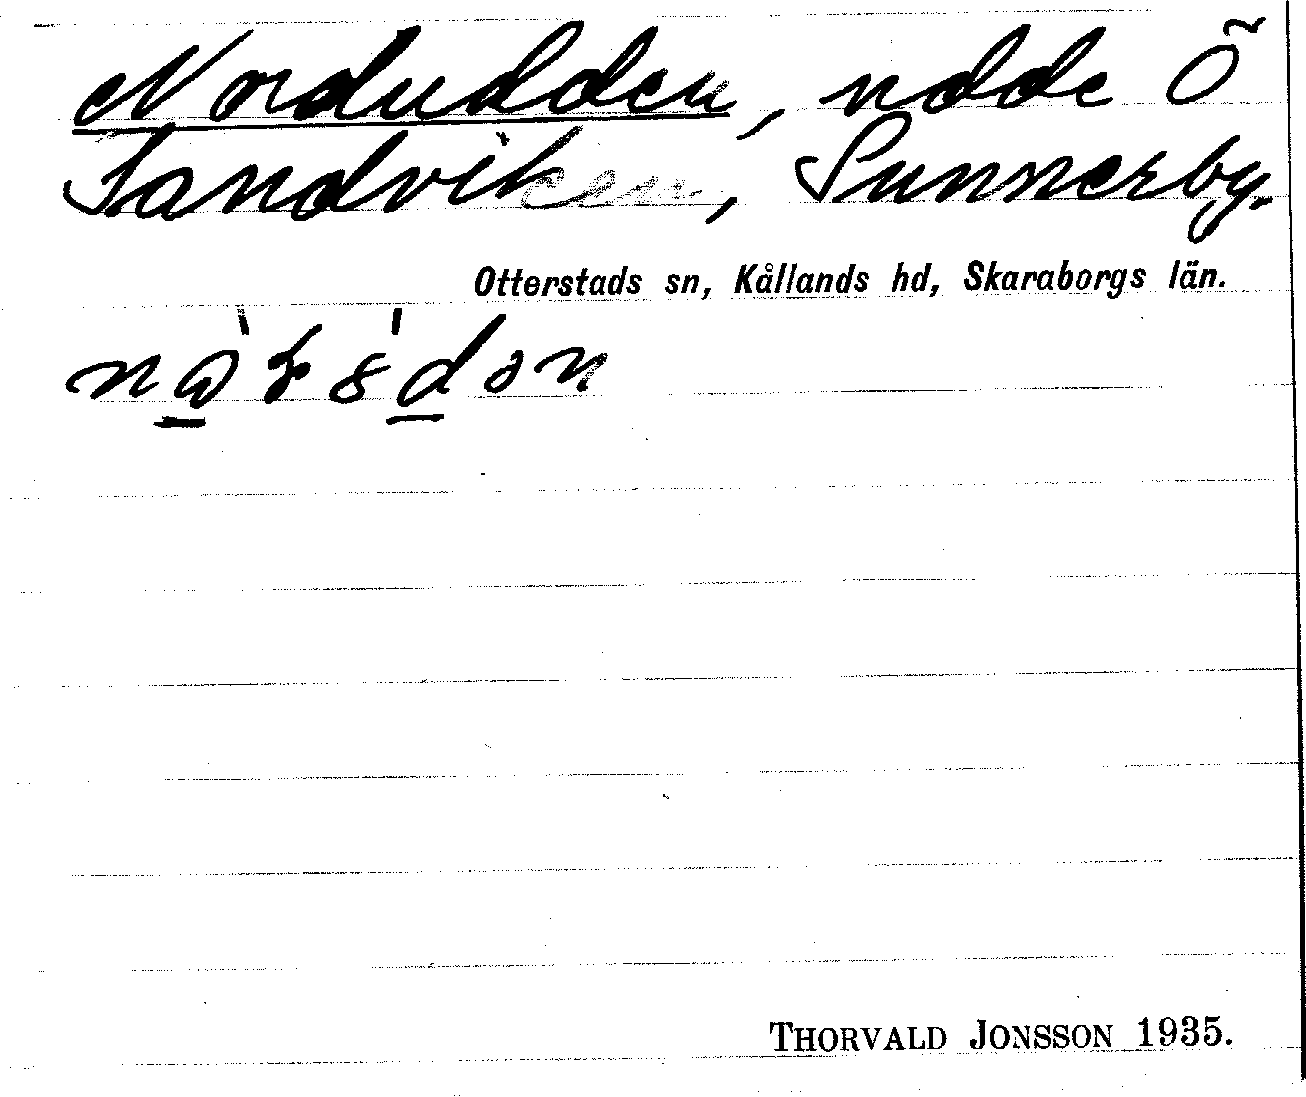 Nordudden, udde Ö
Sandviken, Sunnerby.
Otterstads sn, Kållands hd, Skaraborgs län.
THORVALD JONSSON 1935.